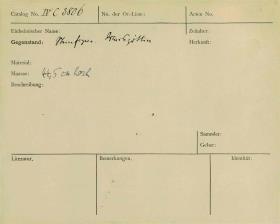 Catalog No. IV C 3806 No. der Or.-Liste: Acten No.
Einheimischer Name: Zeitalter:
Gegenstand: Herkunft:
Material:
Maasse: cm hoch
Beschreibung:
Sammler:
Geber:
Literatur, Bemerkungen, Identität: